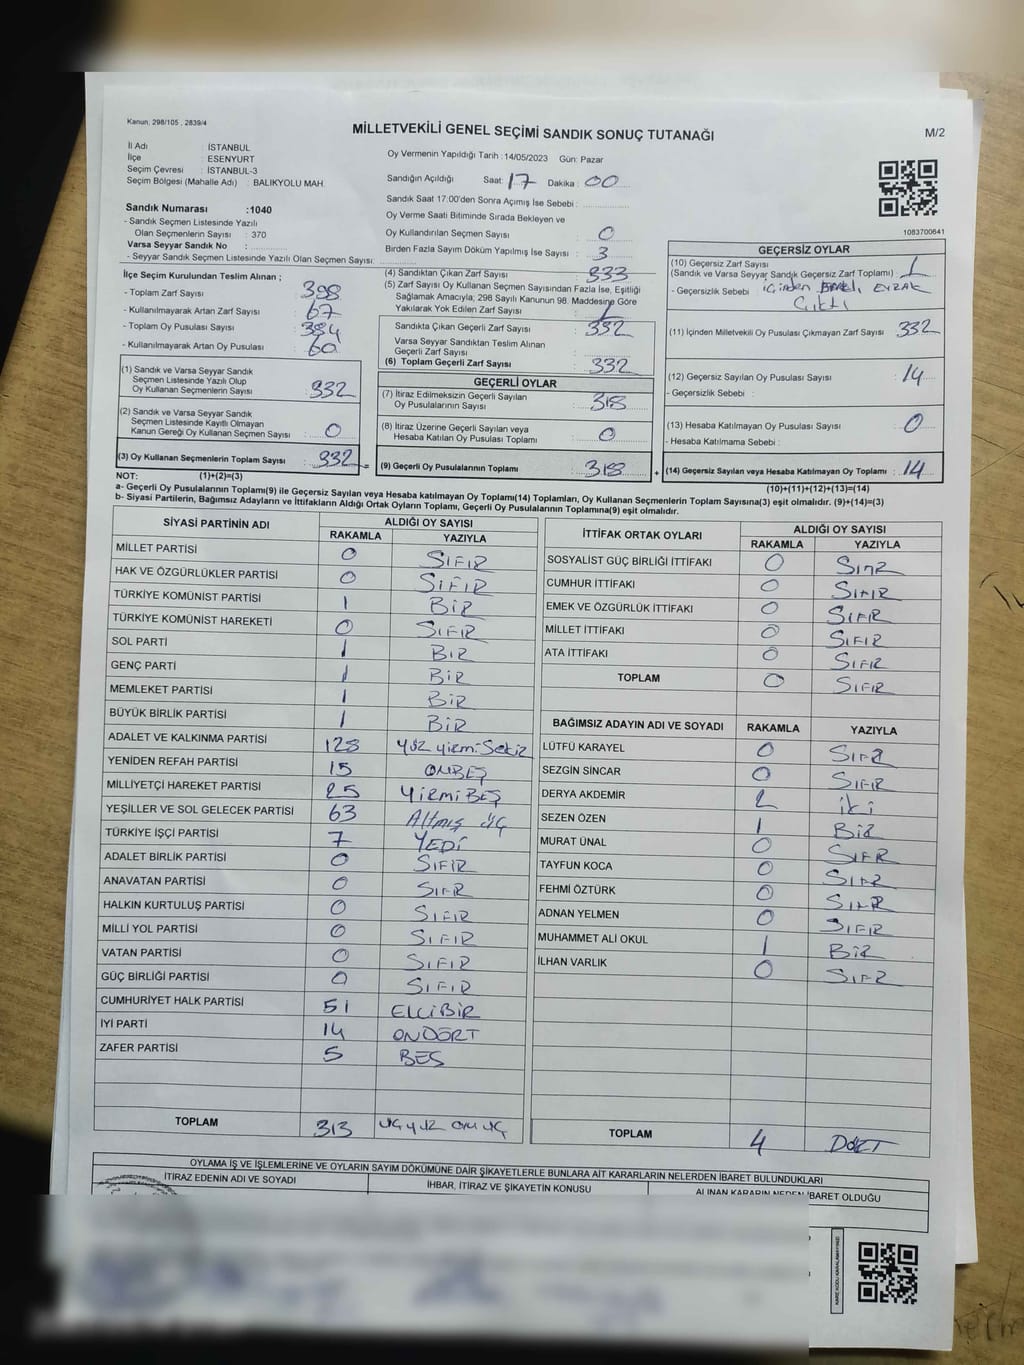 Kanun, 298/105 , 2839/4
MİLLETVEKİLİ GENEL SEÇİMİ SANDIK SONUÇ TUTANAĞI
M/2
İl Adı : İSTANBUL
İlçe : ESENYURT
Seçim Çevresi : İSTANBUL-3
Seçim Bölgesi (Mahalle Adı) : BALIKYOLU MAH.
Sandık Numarası :1040
- Sandık Seçmen Listesinde Yazılı
Olan Seçmenlerin Sayısı : 370
Varsa Seyyar Sandık No :
- Seyyar Sandık Seçmen Listesinde Yazılı Olan Seçmen Sayısı:
Oy Vermenin Yapıldığı Tarih :14/05/2023 Gün: Pazar
Sandığın Açıldığı Saat: 17 Dakika : 00
Sandık Saat 17:00'den Sonra Açımış İse Sebebi :
Oy Verme Saati Bitiminde Sırada Bekleyen ve
Oy Kullandırılan Seçmen Sayısı : 0
Birden Fazla Sayım Döküm Yapılmış İse Sayısı : 3
1083700641
İlçe Seçim Kurulundan Teslim Alınan ;
- Toplam Zarf Sayısı : 398
- Kullanılmayarak Artan Zarf Sayısı : 67
- Toplam Oy Pusulası Sayısı : 384
- Kullanılmayarak Artan Oy Pusulası : 60
(1) Sandık ve Varsa Seyyar Sandık
Seçmen Listesinde Yazılı Olup
Oy Kullanan Seçmenlerin Sayısı : 332
(2) Sandık ve Varsa Seyyar Sandık
Seçmen Listesinde Kayıtlı Olmayan
Kanun Gereği Oy Kullanan Seçmen Sayısı : 0
(3) Oy Kullanan Seçmenlerin Toplam Sayısı : 332
(1)+(2)=(3)
(4) Sandıktan Çıkan Zarf Sayısı : 333
(5) Zarf Sayısı Oy Kullanan Seçmen Sayısından Fazla İse, Eşitliği
Sağlamak Amacıyla; 298 Sayılı Kanunun 98. Maddesine Göre
Yakılarak Yok Edilen Zarf Sayısı : 1
Sandıkta Çıkan Geçerli Zarf Sayısı : 332
Varsa Seyyar Sandıktan Teslim Alınan
Geçerli Zarf Sayısı :
(6) Toplam Geçerli Zarf Sayısı : 332
GEÇERLİ OYLAR
(7) İtiraz Edilmeksizin Geçerli Sayılan
Oy Pusulalarının Sayısı : 318
(8) İtiraz Üzerine Geçerli Sayılan veya
Hesaba Katılan Oy Pusulası Toplamı : 0
= (9) Geçerli Oy Pusulalarının Toplamı : 318
GEÇERSİZ OYLAR
(10) Geçersiz Zarf Sayısı
(Sandık ve Varsa Seyyar Sandık Geçersiz Zarf Toplamı) : 1
- Geçersizlik Sebebi : içinden EVRAK
ÇIKTI
(11) İçinden Milletvekili Oy Pusulası Çıkmayan Zarf Sayısı : 332
(12) Geçersiz Sayılan Oy Pusulası Sayısı : 14
- Geçersizlik Sebebi :
(13) Hesaba Katılmayan Oy Pusulası Sayısı : 0
- Hesaba Katılmama Sebebi :
+ (14) Geçersiz Sayılan veya Hesaba Katılmayan Oy Toplamı : 14
(10)+(11)+(12)+(13)=(14)
NOT:
a- Geçerli Oy Pusulalarının Toplamı(9) ile Geçersiz Sayılan veya Hesaba katılmayan Oy Toplamı(14) Toplamları, Oy Kullanan Seçmenlerin Toplam Sayısına(3) eşit olmalıdır. (9)+(14)=(3)
b- Siyasi Partilerin, Bağımsız Adayların ve İttifakların Aldığı Ortak Oyların Toplamı, Geçerli Oy Pusulalarının Toplamına(9) eşit olmalıdır.
SİYASİ PARTİNİN ADI ALDIĞI OY SAYISI
RAKAMLA YAZIYLA
MİLLET PARTİSİ 0 SIFIR
HAK VE ÖZGÜRLÜKLER PARTİSİ 0 SIFIR
TÜRKİYE KOMÜNİST PARTİSİ 1 BİR
TÜRKİYE KOMÜNİST HAREKETİ 0 SIFIR
SOL PARTİ 1 BİR
GENÇ PARTİ 1 BİR
MEMLEKET PARTİSİ 1 BİR
BÜYÜK BİRLİK PARTİSİ 1 BİR
ADALET VE KALKINMA PARTİSİ 128 yüz yirmi Sekiz
YENİDEN REFAH PARTİSİ 15 ONBEŞ
MİLLİYETÇİ HAREKET PARTİSİ 25 YİRMİBEŞ
YEŞİLLER VE SOL GELECEK PARTİSİ 63 Altmış üç
TÜRKİYE İŞÇİ PARTİSİ 7 YEDİ
ADALET BİRLİK PARTİSİ 0 SIFIR
ANAVATAN PARTİSİ 0 SIFIR
HALKIN KURTULUŞ PARTİSİ 0 SIFIR
MİLLİ YOL PARTİSİ 0 SIFIR
VATAN PARTİSİ 0 SIFIR
GÜÇ BİRLİĞİ PARTİSİ 0 SIFIR
CUMHURİYET HALK PARTİSİ 51 ELLİBİR
İYİ PARTİ 14 ONDÖRT
ZAFER PARTİSİ 5 BEŞ
TOPLAM 313 üç yüz on üç
İTTİFAK ORTAK OYLARI ALDIĞI OY SAYISI
RAKAMLA YAZIYLA
SOSYALİST GÜÇ BİRLİĞİ İTTİFAKI 0 SIFIR
CUMHUR İTTİFAKI 0 SIFIR
EMEK VE ÖZGÜRLÜK İTTİFAKI 0 SIFIR
MİLLET İTTİFAKI 0 SIFIR
ATA İTTİFAKI 0 SIFIR
TOPLAM 0 SIFIR
BAĞIMSIZ ADAYIN ADI VE SOYADI RAKAMLA YAZIYLA
LÜTFÜ KARAYEL 0 SIFIR
SEZGİN SİNCAR 0 SIFIR
DERYA AKDEMİR 2 iki
SEZEN ÖZEN 1 BİR
MURAT ÜNAL 0 SIFIR
TAYFUN KOCA 0 SIFIR
FEHMİ ÖZTÜRK 0 SIFIR
ADNAN YELMEN 0 SIFIR
MUHAMMET ALİ OKUL 1 BİR
İLHAN VARLIK 0 SIFIR
TOPLAM 4 DÖRT
OYLAMA İŞ VE İŞLEMLERİNE VE OYLARIN SAYIM DÖKÜMÜNE DAİR ŞİKAYETLERLE BUNLARA AİT KARARLARIN NELERDEN İBARET BULUNDUKLARI
İTİRAZ EDENİN ADI VE SOYADI
İHBAR, İTİRAZ VE ŞİKAYETİN KONUSU
ALINAN KARARIN NEDEN İBARET OLDUĞU